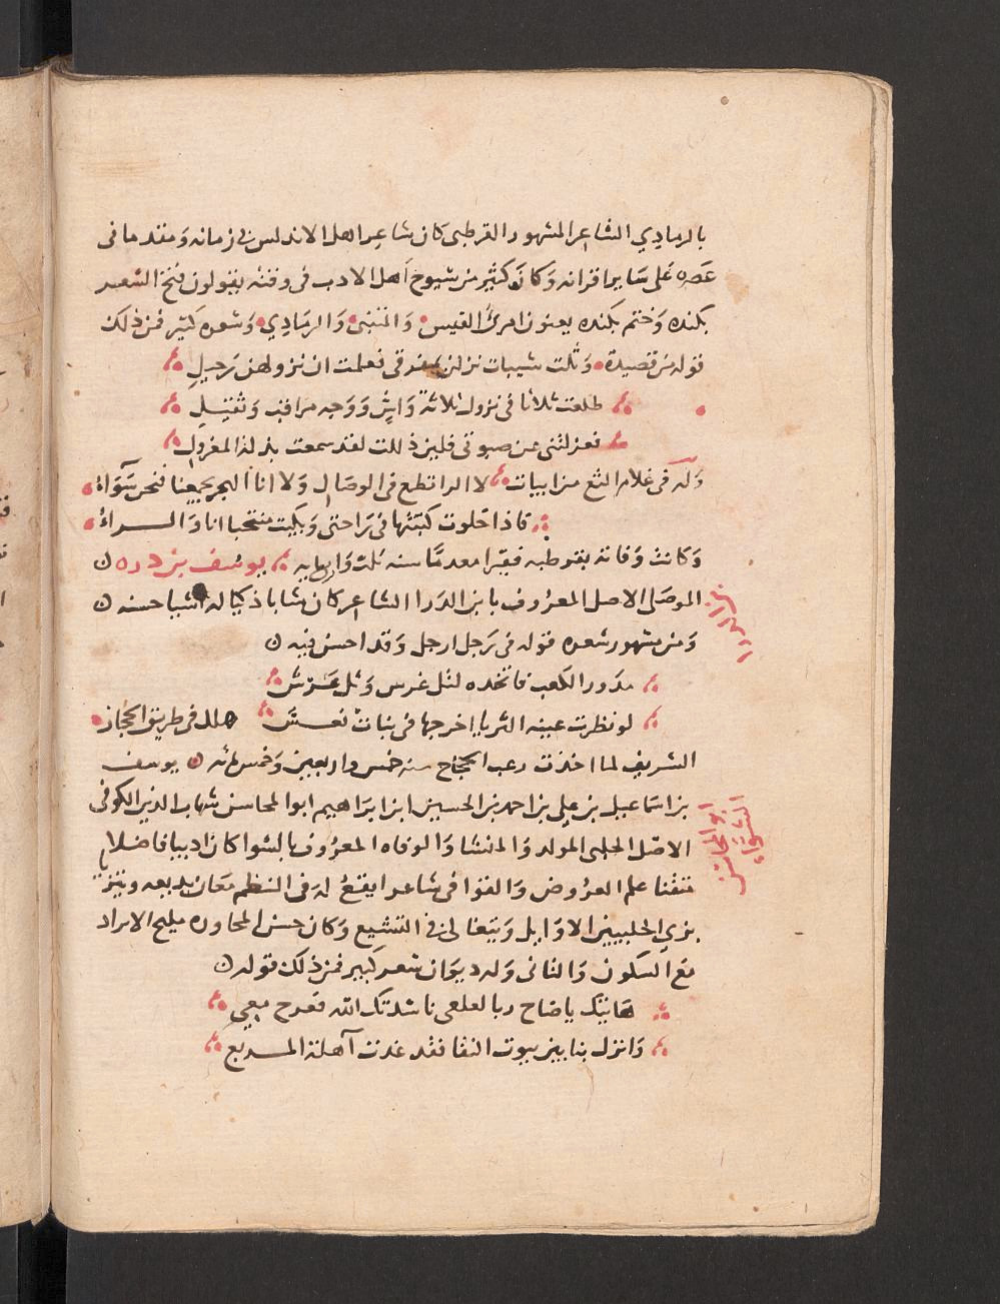 بالرمادي الشاعر المشهور القرطبى كان شاعر اهل الاندلس فى زمانه ومقدما فى
عصره على ساير اقرانه وكان كثير من شيوخ اهل الادب فى وقته يقولون فتح الشعر
بكنده وختم بكنده يعنون امرئ القيس والمتنبى والرمادي وشعره كثير فمن ذلك
قوله من قصيدة وثلث شيبات نزلن بمفرقى فعلمت ان نزولهن رحيل
طلعت ثلاثا فى نزول ثلاثة واش ووجه مراقب وثقيل
فعزلننى عن صبوتى فلين ذللت لقد سمعت بذلة المعزول
وله فى غلام الثغ من ابيات لا الرا تطمع فى الوصال ولا انا الهجر يجمعنا فنحن سواء
فاذا خلوت كتبتها فى راحتى وبكيت منتحبا انا والراء
وكانت وفاته بقرطبه فقيرا معدما سنه ثلث واربعمايه يوسف بن دره
الموصلى الاصل المعروف بابن الدرا الشاعر كان شابا ذكيا له اشيا حسنه
ومن مشهور شعره قوله فى رجل ارجل وقد احسن فيه
مدور الكعب فاتخذه لتل غرس وثل عرش
لو نظرت عينه الثريا اخرجها فى بنات نعش هلك فى طريق الحجاز
الشريف لما اخذت زعب الحجاج سنه خمس واربعين وخمسمائه يوسف
بن اسماعيل بن علي بن احمد بن الحسين ابن ابراهيم ابو المحاسن شهاب الدين الكوفى
الاصل الحلبى المولد والمنشا والوفاه المعروف بالشوا كان اديبا فاضلا
متقنا علم العروض والقوافى شاعرا يقع له فى النظم معان بديعه ويتزيا
بزي الحلبيين الاوايل ويتغالى فى التشيع وكان حسن المحاوره مليح الايراد
مع السكون والتانى وله ديوان شعر كبير فمن ذلك قوله
هاتيك يا صاح ربا لعلعى ناشدتك الله فعرج معي
وانزل بنا بين بيوت النقا فقد غدت آهلة المربع
بن الدرا
ابو المحاسن
الشواء